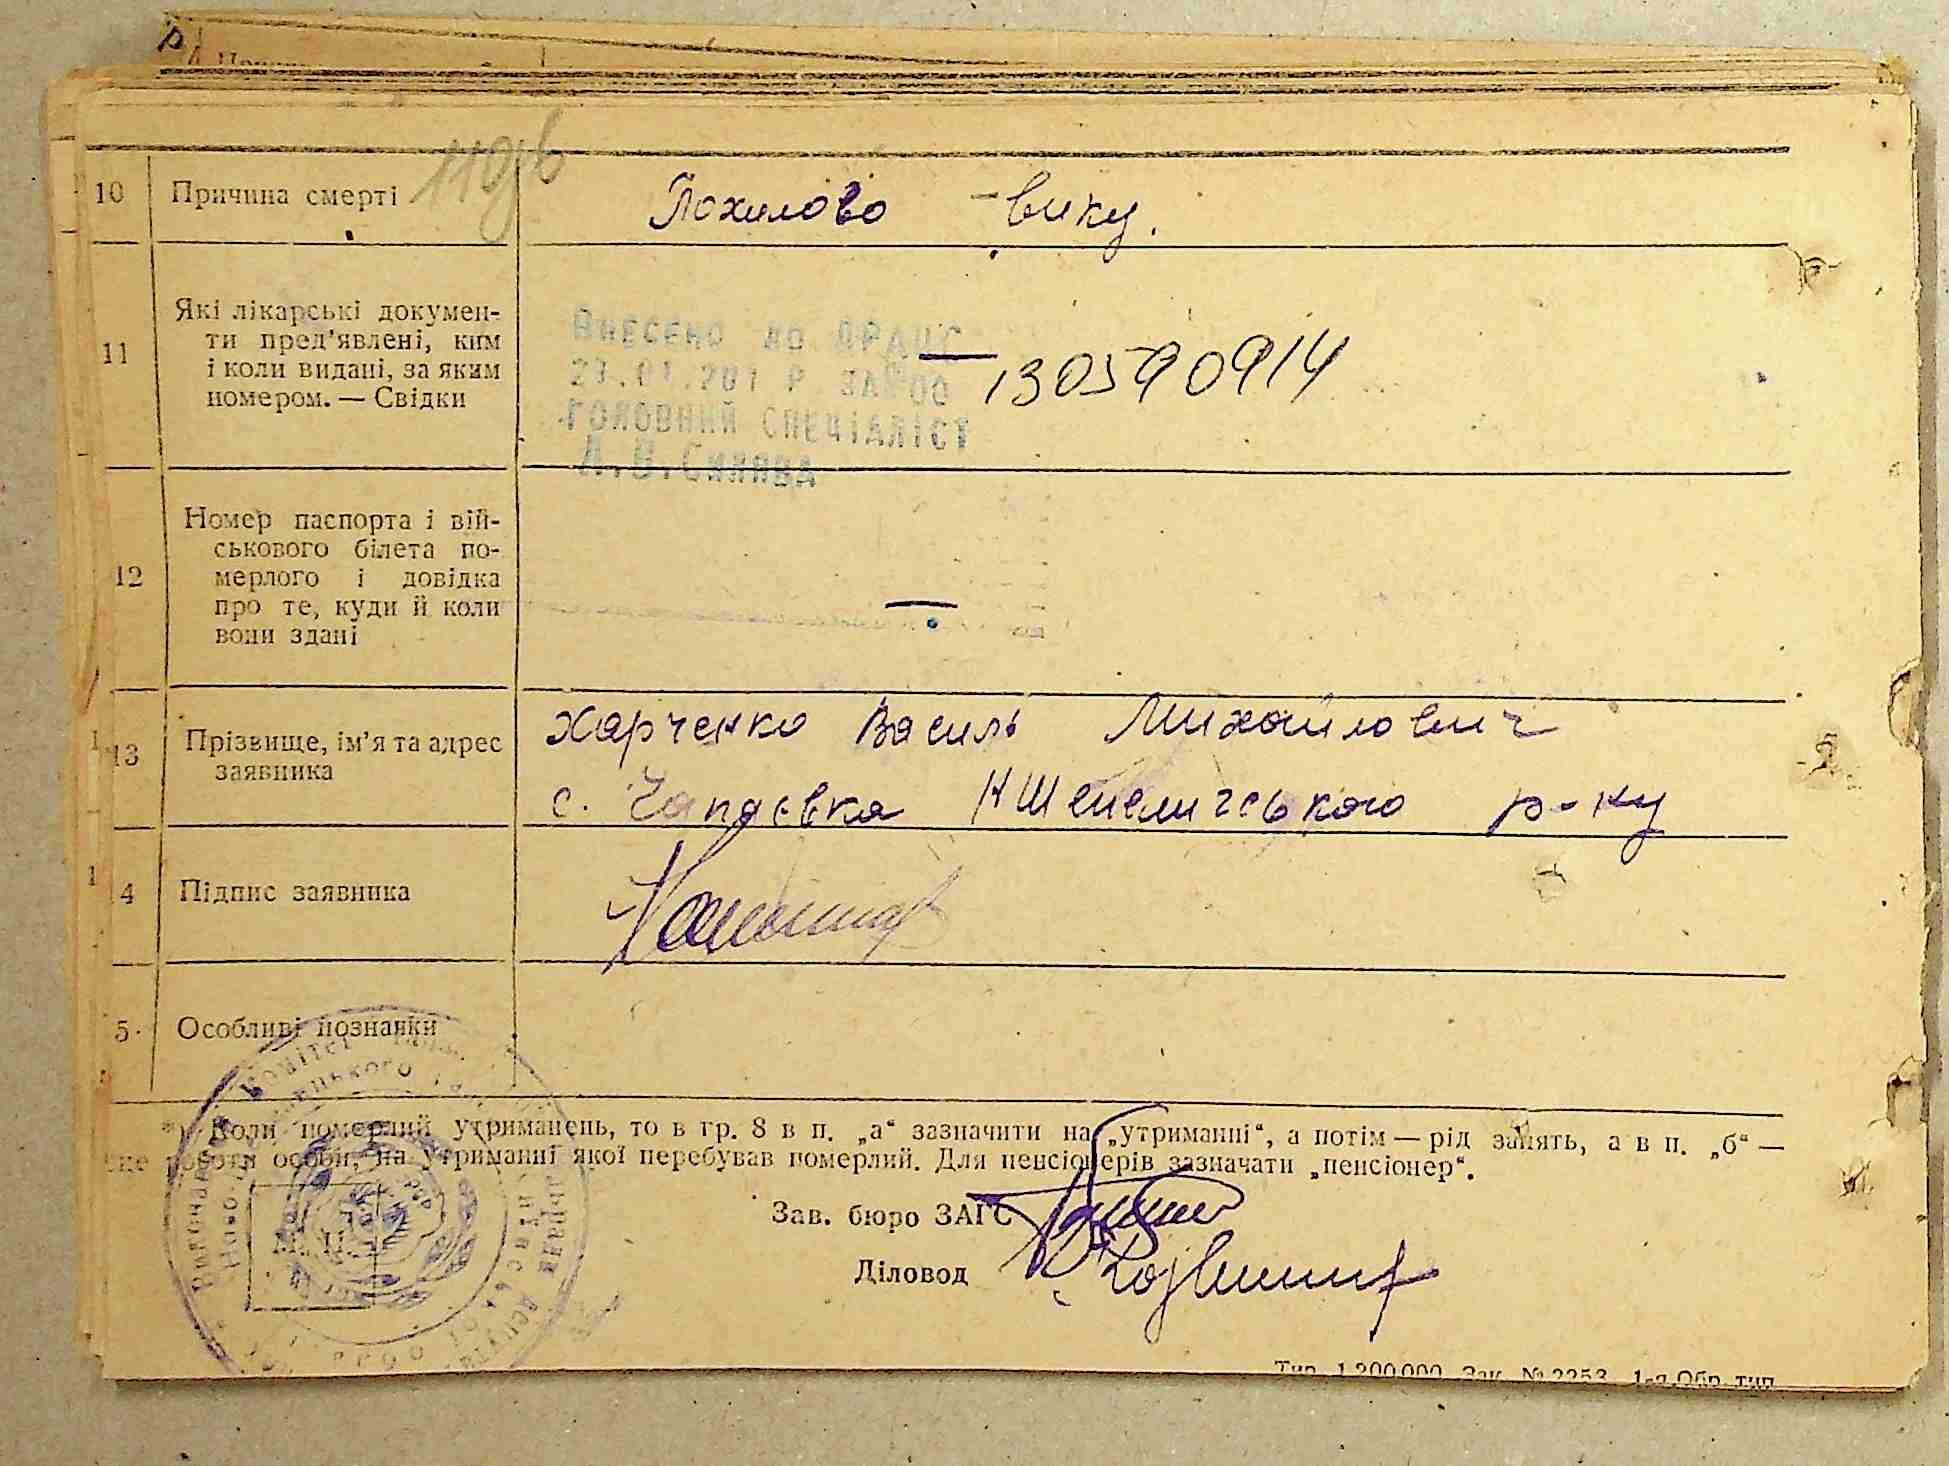 10 Причина смерти Похилово вику.
11 Які лікарські докумен-
ти пред'явлені, ким
і коли видані, за яким
номером. — Свідки
Внесено до ДРАЦС
ГОЛОВНИЙ СПЕЦІАЛІСТ
— 130590914
12 Номер паспорта і вій-
ськового білета по-
мерлого і довідка
про те, куди й коли
вони здані
—
13 Прізвище, ім'я та адрес
заявника
Харченко Василь Михайлович
с. Чапаєвка НШепелического р-ну
4 Підпис заявника
5. Особливі познанки
*) Коли померлий утриманець, то в гр. 8 в п. „а“ зазначити на „утриманні“, а потім — рід занять, а в п. „б“ —
роботи особи, на утриманні якої перебував померлий. Для пенсіонерів зазначати „пенсіонер“.
Зав. бюро ЗАГС
М. П.
Діловод
Тип. 1.200.000 Зак. № 2253 1-я Обр. тип.